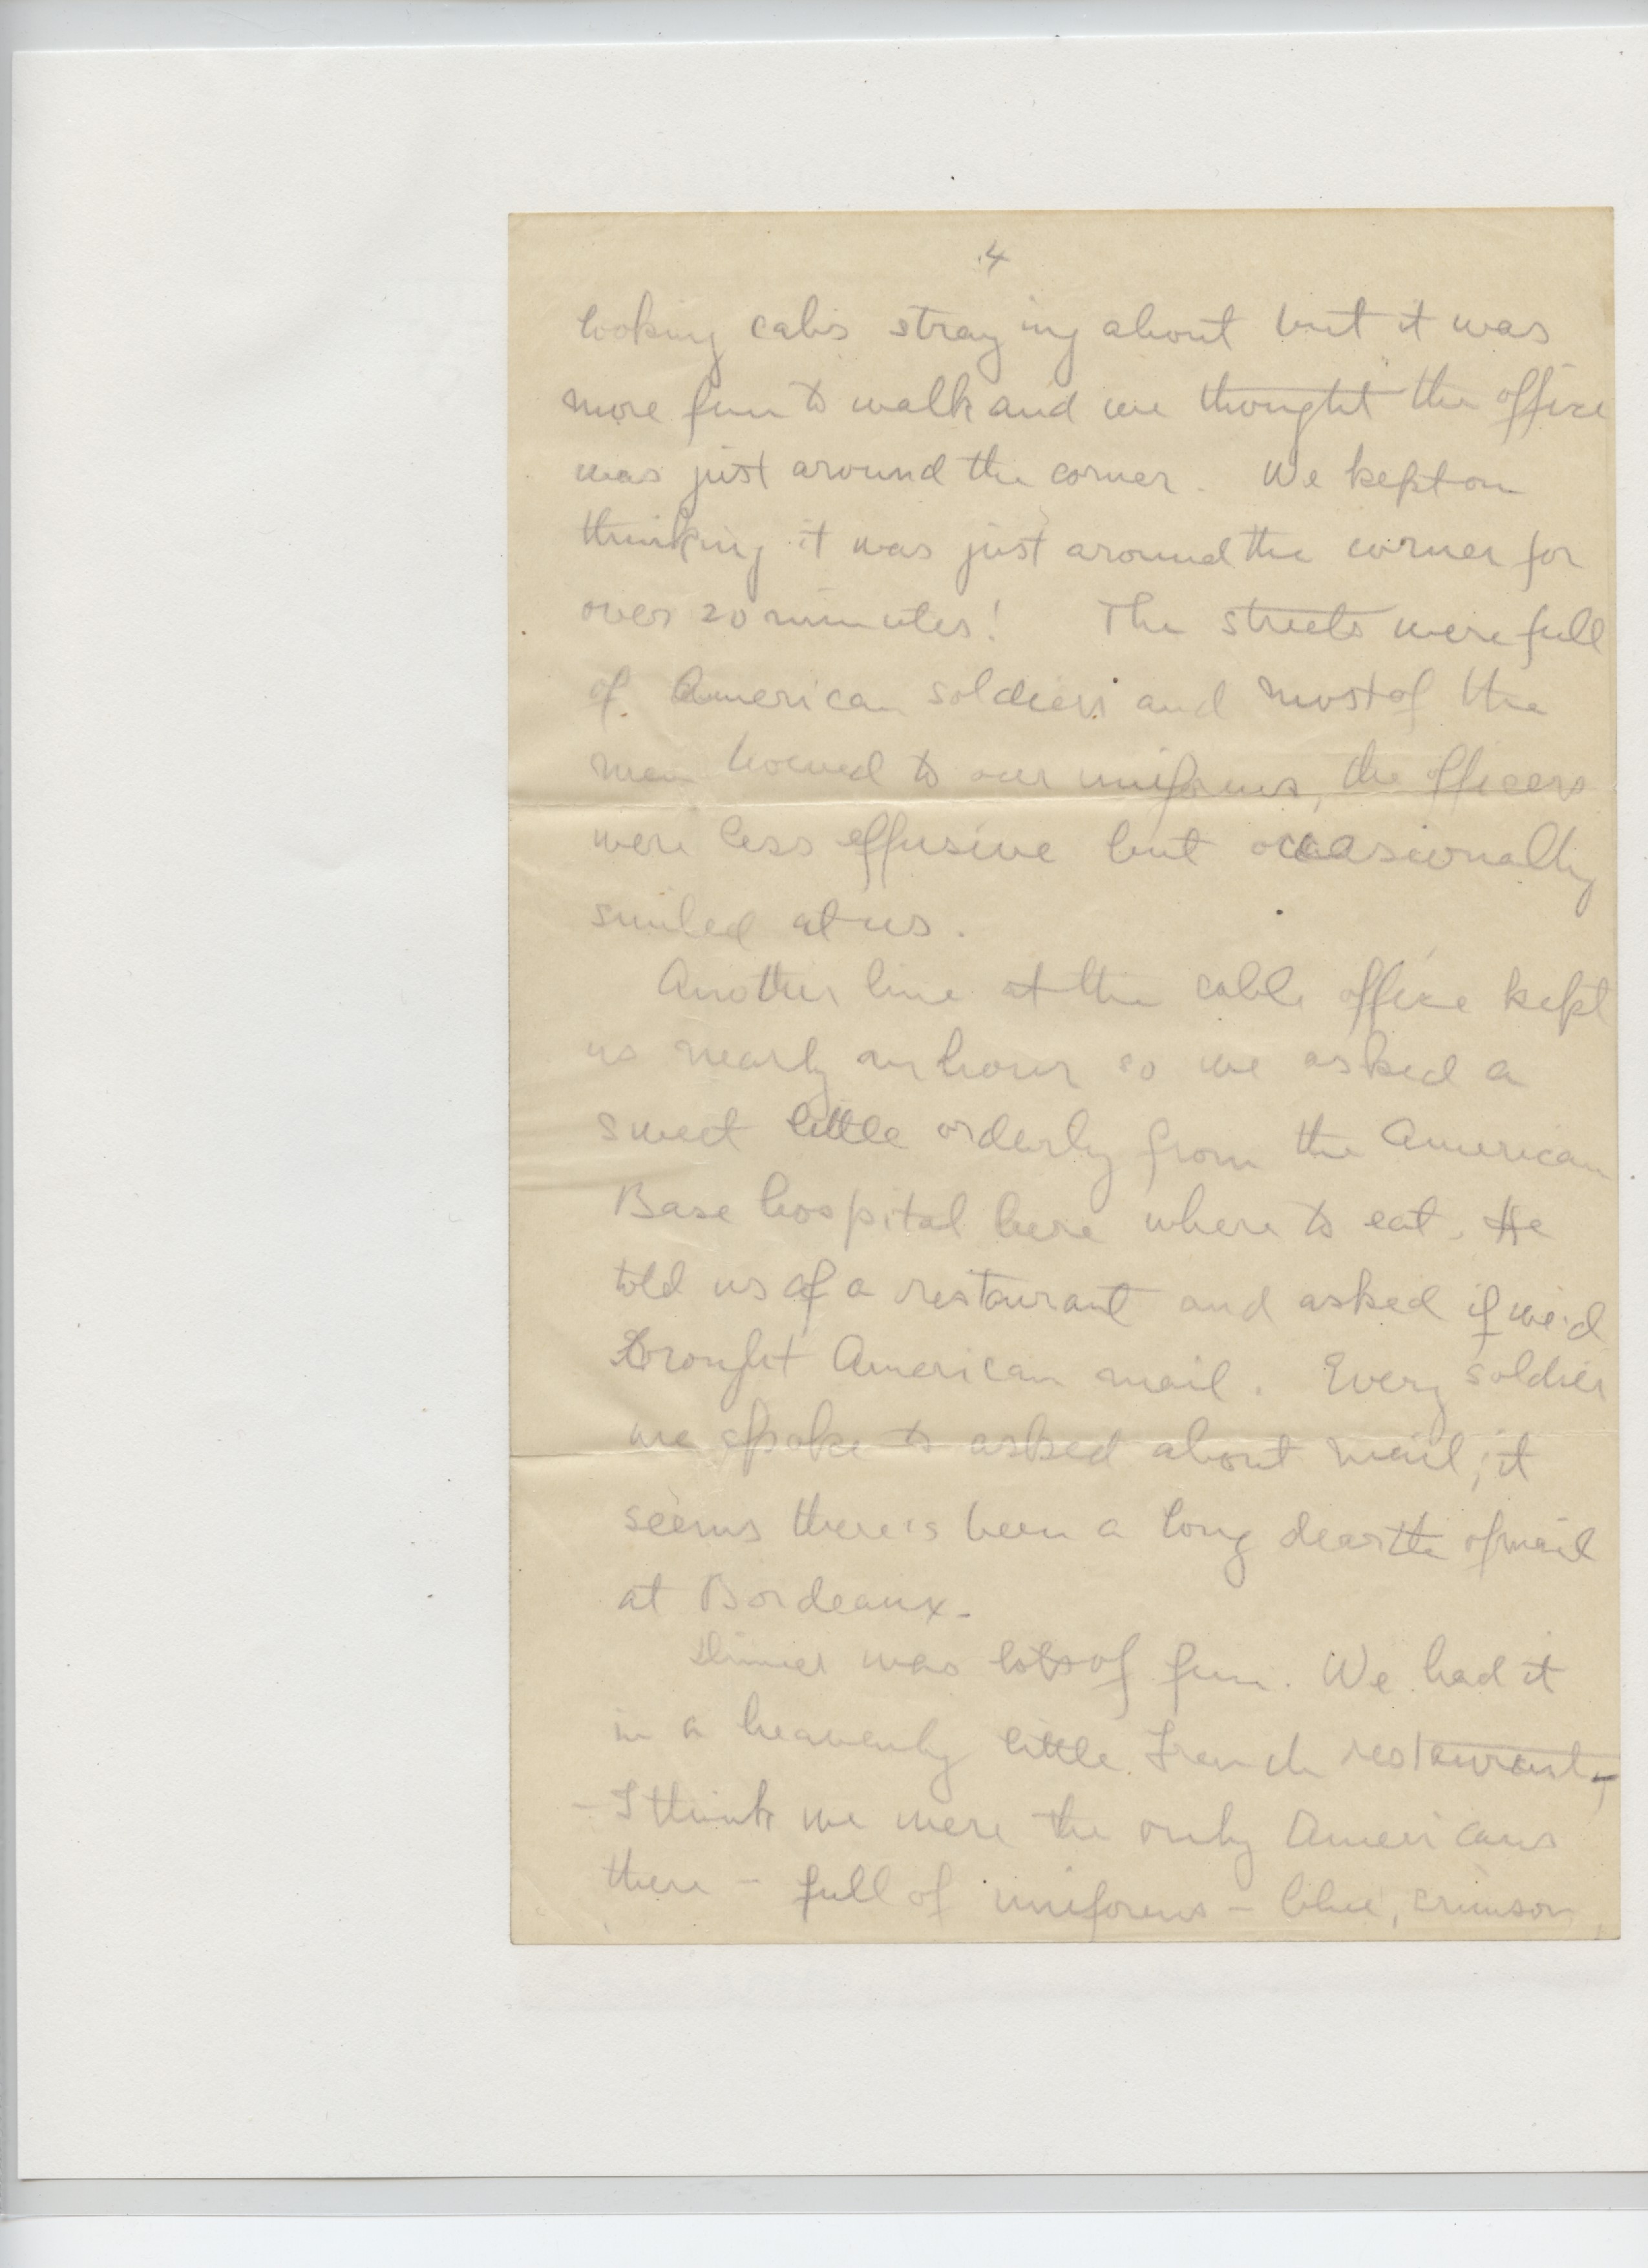 4
looking cabs straying about but it was
more fun to walk and we thought the office
was just around the corner. We kept on
thinking it was just around the corner for
over 20 minutes! The streets were full
of American soldiers and most of the
men bowed to our uniforms, the officers
were less effusive but occasionally
smiled at us.
Another line at the cable office kept
us nearly an hour so we asked a
sweet little orderly from the American
Base hospital here where to eat. He
told us of a restaurant and asked if we'd
brought American mail. Every soldier
we spoke to asked about mail; it
seems there's been a long dearth of mail
at Bordeaux.
Dinner was lots of fun. We had it
in a heavenly little French restaurant,
- I think we were the only Americans
there - full of uniforms - blue, crimson,